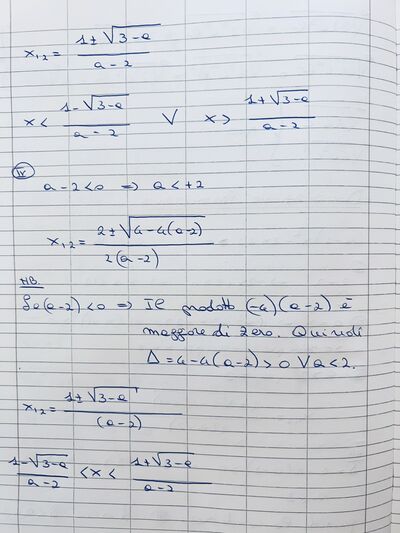 x₁,₂ = (1 ± √(3-a)) / (a-2)
x < (1-√(3-a)) / (a-2) V x > (1+√(3-a)) / (a-2)
IV
a-2<0 ⇒ a<+2
x₁,₂ = (2 ± √(4-4(a-2))) / (2(a-2))
NB.
Se (a-2)<0 ⇒ Il prodotto (-4)(a-2) è
maggiore di zero. Quindi
Δ = 4-4(a-2)>0 ∀a<2.
x₁,₂ = (1 ± √(3-a)) / (a-2)
(1-√(3-a)) / (a-2) < x < (1+√(3-a)) / (a-2)